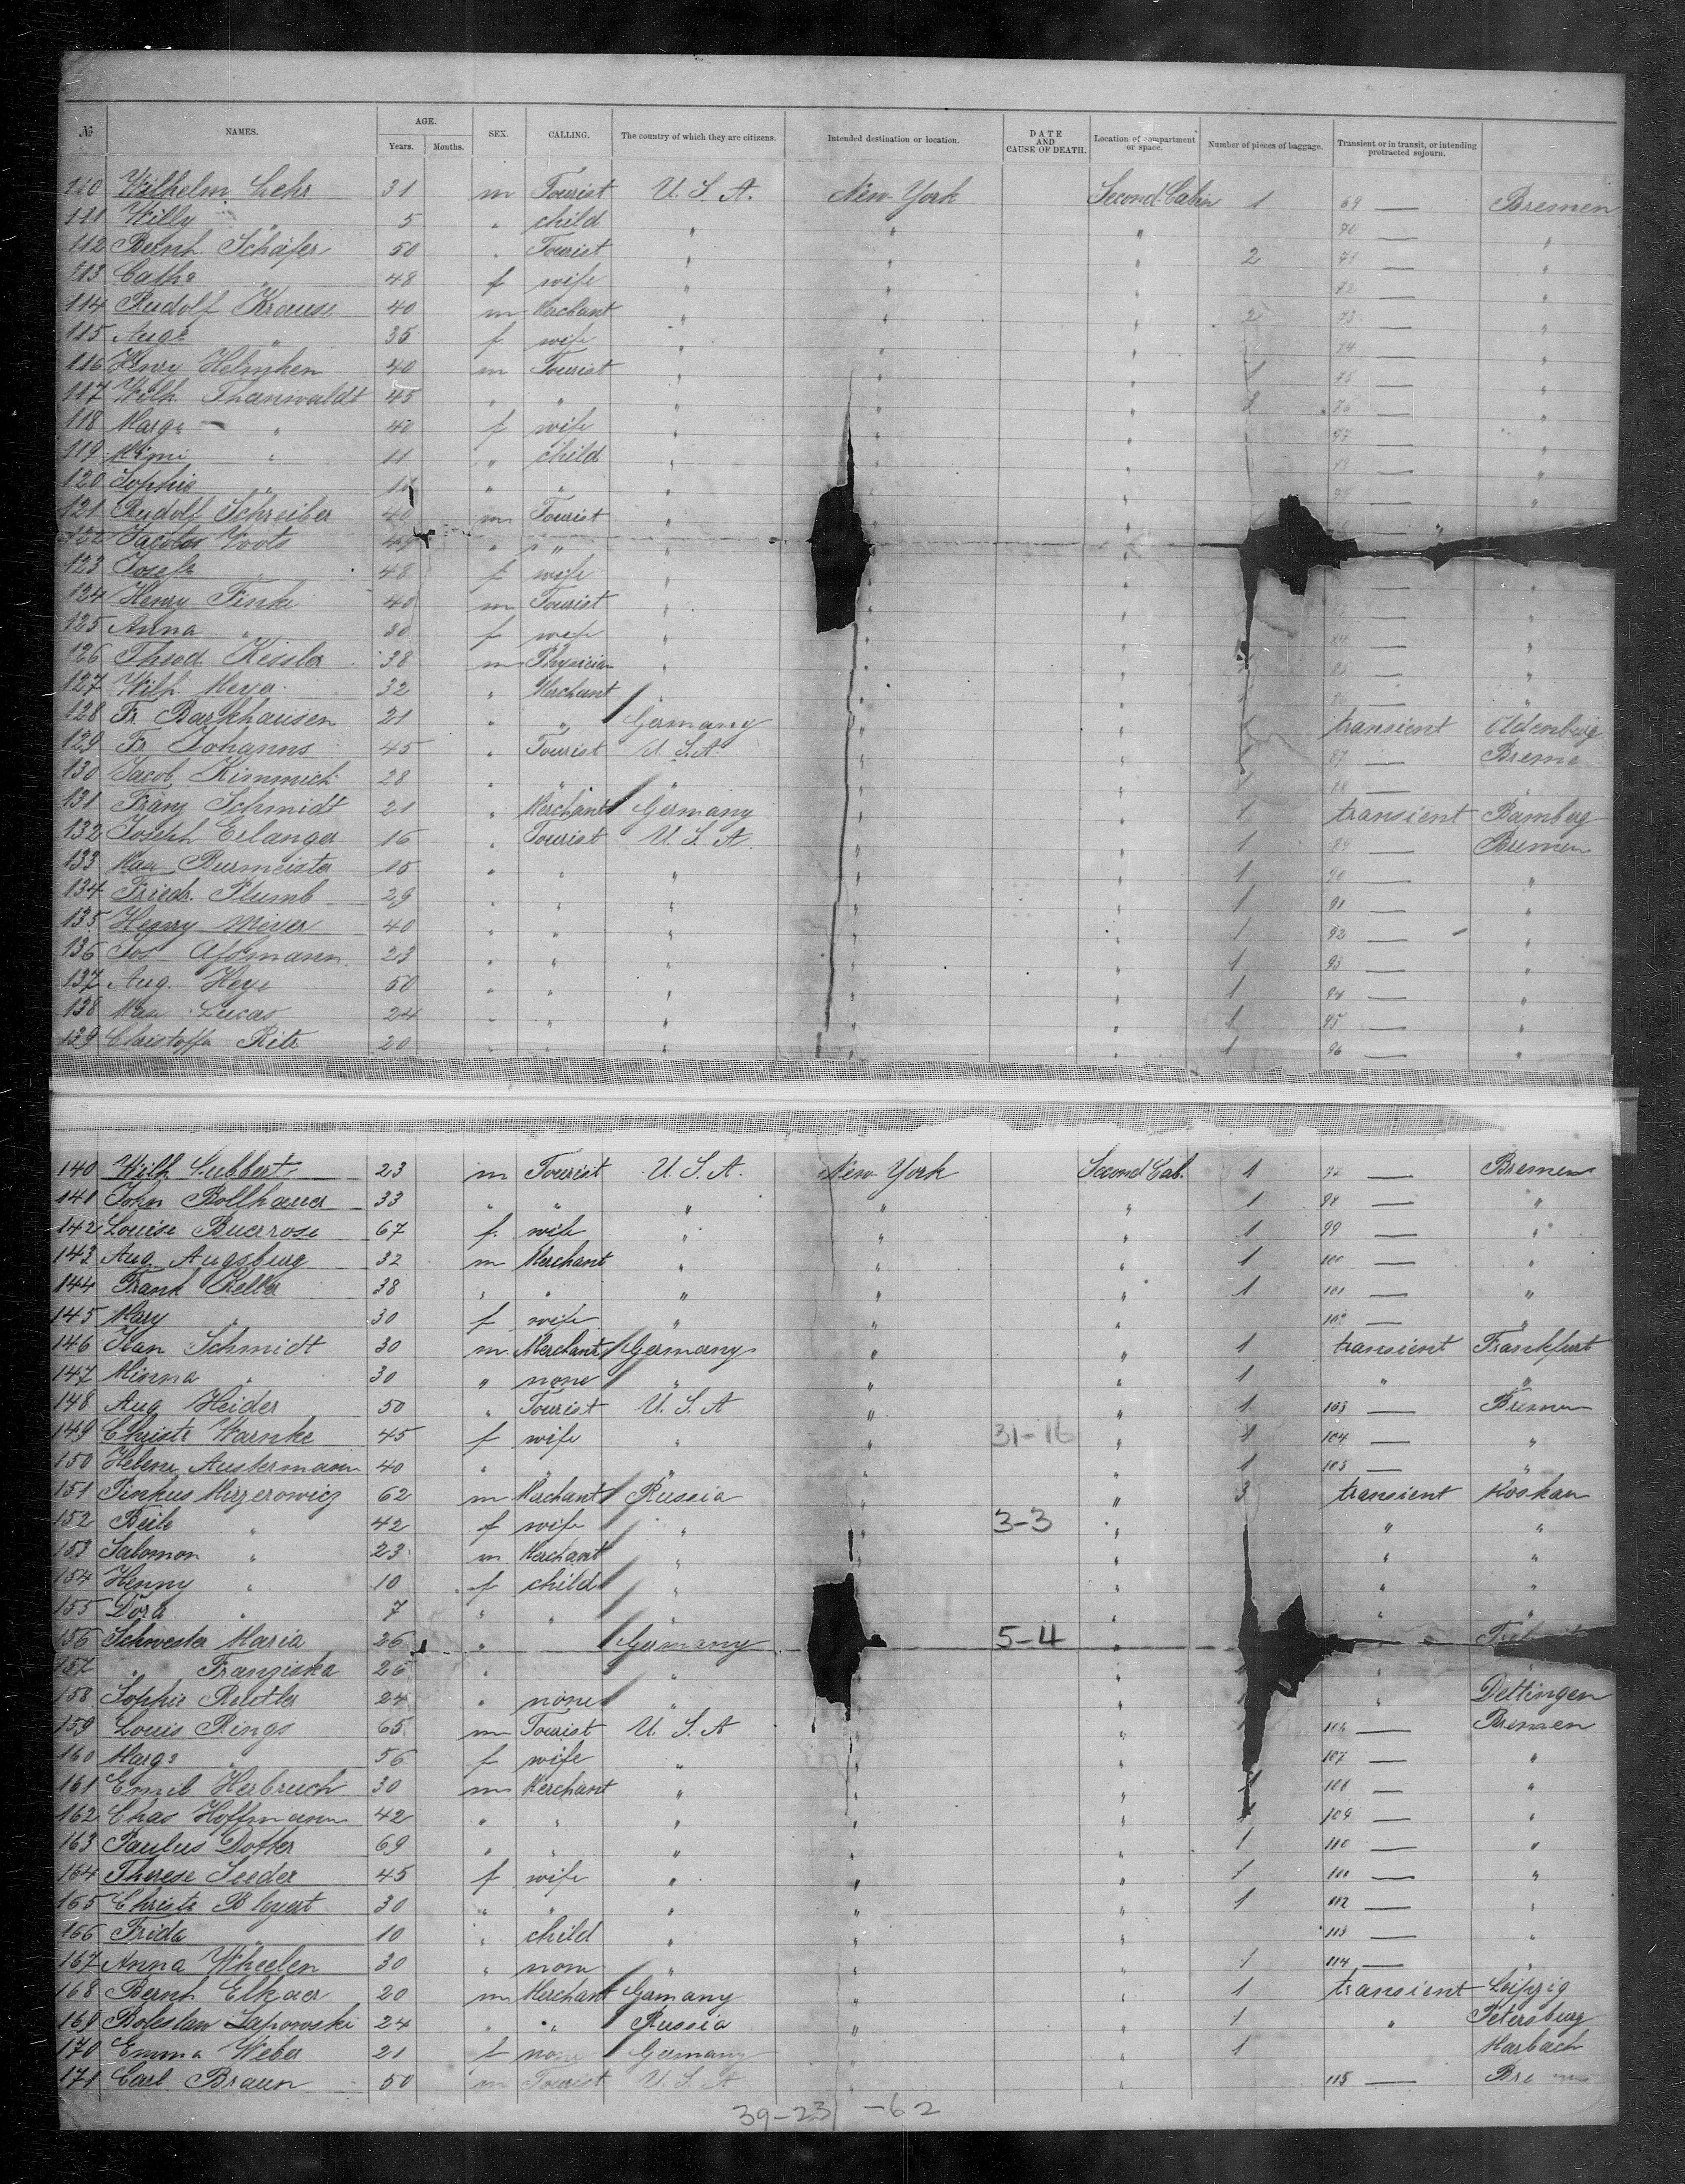 № NAMES. AGE. Years. Months. SEX. CALLING. The country of which they are citizens. Intended destination or location. DATE AND CAUSE OF DEATH. Location of compartment or space. Number of pieces of baggage. Transient or in transit, or intending protracted sojourn.
110 Wilhelm Lehr 31 m Tourist U. S. A. New-York Second Cabin 1 69 — Bremen
111 Willy " 5 " child " " " 70 — "
112 Bernh. Schäfer 50 " Tourist " " " 2 71 — "
113 Cathe " 48 f wife " " " 72 — "
114 Rudolf Krause 40 m Merchant " " " 2 73 — "
115 Auge " 35 f wife " " " 74 — "
116 Henry Helmken 40 m Tourist " " " 1 75 — "
117 Wilh. Thanwaldt 45 " " " " " 76 — "
118 Marge " 40 f wife " " " —
119 Mimi " 11 " child " " " — "
120 Sophie " " " " " " — "
121 Rudolf Schreiber 40 m Tourist " "
122 Voots " " " "
123 Josefe " 48 f wife " " "
124 Henry Finke 40 m Tourist " " " — "
125 Anna " 30 f wife " " " 84 — "
126 Theod. Kessler 38 m Physician " " " 85 — "
127 Wilh. Meyer 32 " Merchant " " " 86 — "
128 Fr. Barkhausen 21 " " Germany " " transient Oldenburg
129 Fr. Johanns 45 " Tourist U. S. A. " " 87 — Breme
130 Jacob Kimmich 28 " " " " " 1 88 — "
131 Franz Schmidt 21 " Merchant Germany " " 1 transient Bamberg
132 Joseph Erlanger 16 " Tourist U. S. A. " " 1 89 — Bremen
133 Max Burmeister 15 " " " " " 1 90 — "
134 Friedr. Plumb 29 " " " " " 1 91 — "
135 Henry Meyer 40 " " " " " 1 92 — "
136 Jos. 23 " " " " " 1 93 — "
137 Aug. Heye 50 " " " " " 1 94 — "
138 Max Lucas 24 " " " " " 1 95 — "
139 Christoffer Ritz 20 " " " " " 1 96 — "
140 Wilh. Lubbert 23 m Tourist U. S. A. New-York Second Cab. 1 — Bremen
141 John Bollhauer 33 " " " " " 1 98 — "
142 Louise Buerrose 67 f. wife " " " 1 99 — "
143 Aug. Augsburg 32 m Merchant " " " 1 100 — "
144 Frank Keller 38 " " " " " 1 101 — "
145 Mary " 30 f wife " " " 102 — "
146 Schmidt 30 m Merchant Germany " " 1 transient Frankfurt
147 Minna " 30 " none " " " 1 " "
148 Aug. Heider 50 " Tourist U. S. A " " 1 103 — Bremen
149 Christe Warnke 45 f wife " " 31-16 " 1 104 — "
150 Helene Austermann 40 " " " " " 1 105 — "
151 Pinkus Mirzerowicz 62 m Merchant Russia " " 3 transient
152 Beile " 42 f wife " " 3-3 " " "
153 Salomon " 23 m Merchant " " " " "
154 Henny " 10 f child " " " "
155 Dora " 7 " " " " " "
156 Schwester Maria 26 " Germany 5-4 "
157 " Franziska 26 " " " "
158 Sophie Reutler 24 " none " " " Dettingen
159 Louis Rings 65 m Tourist U. S. A " " 106 — Bremen
160 Marge " 56 f wife " " " 107 — "
161 Emil Herbruch 30 m Merchant " " " 1 108 — "
162 Chas Hoffmann 42 " " " " " 109 — "
163 Paulus Dotter 69 " " " " " 1 110 — "
164 Therese Seeder 45 f wife " " " 1 111 — "
165 Christe Bleyert 30 " " " " " 1 112 — "
166 Frida " 10 " child " " " 113 — "
167 Anna Wheelen 30 " none " " " 1 114 — "
168 Bernh. Elkaer 20 m Merchant Germany " " 1 transient Leipzig
169 Boleslaw Lapowski 24 " " Russia " " 1 " Petersburg
170 Emma Weber 21 f none Germany " " 1 Marbach
171 Carl Braun 50 m Tourist U. S. A " " 115 — Bre
39-23 -62